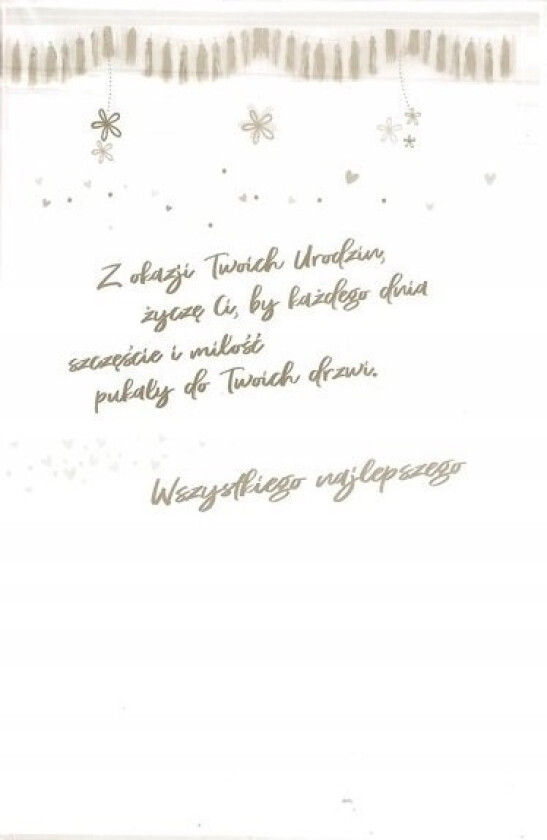 Z okazji Twoich Urodzin,
życzę Ci, by każdego dnia
szczęście i miłość
pukały do Twoich drzwi.
Wszystkiego najlepszego